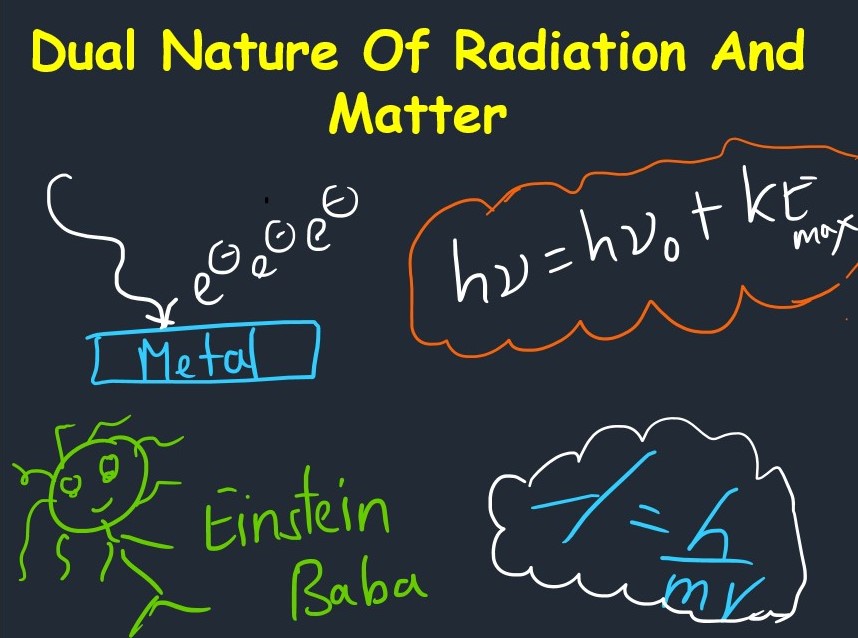 Dual Nature Of Radiation And
Matter
e⊖ e⊖ e⊖
hν = hν₀ + KE max
Metal
Einstein
Baba
λ = h/mv